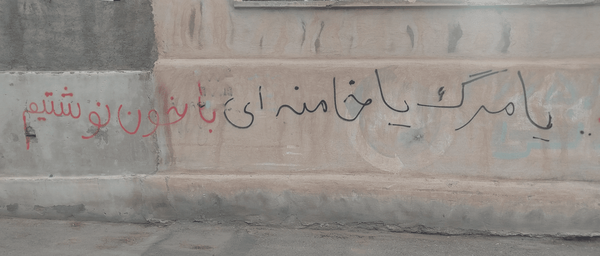 یا مرگ یا خامنه ای با خون نوشتیم